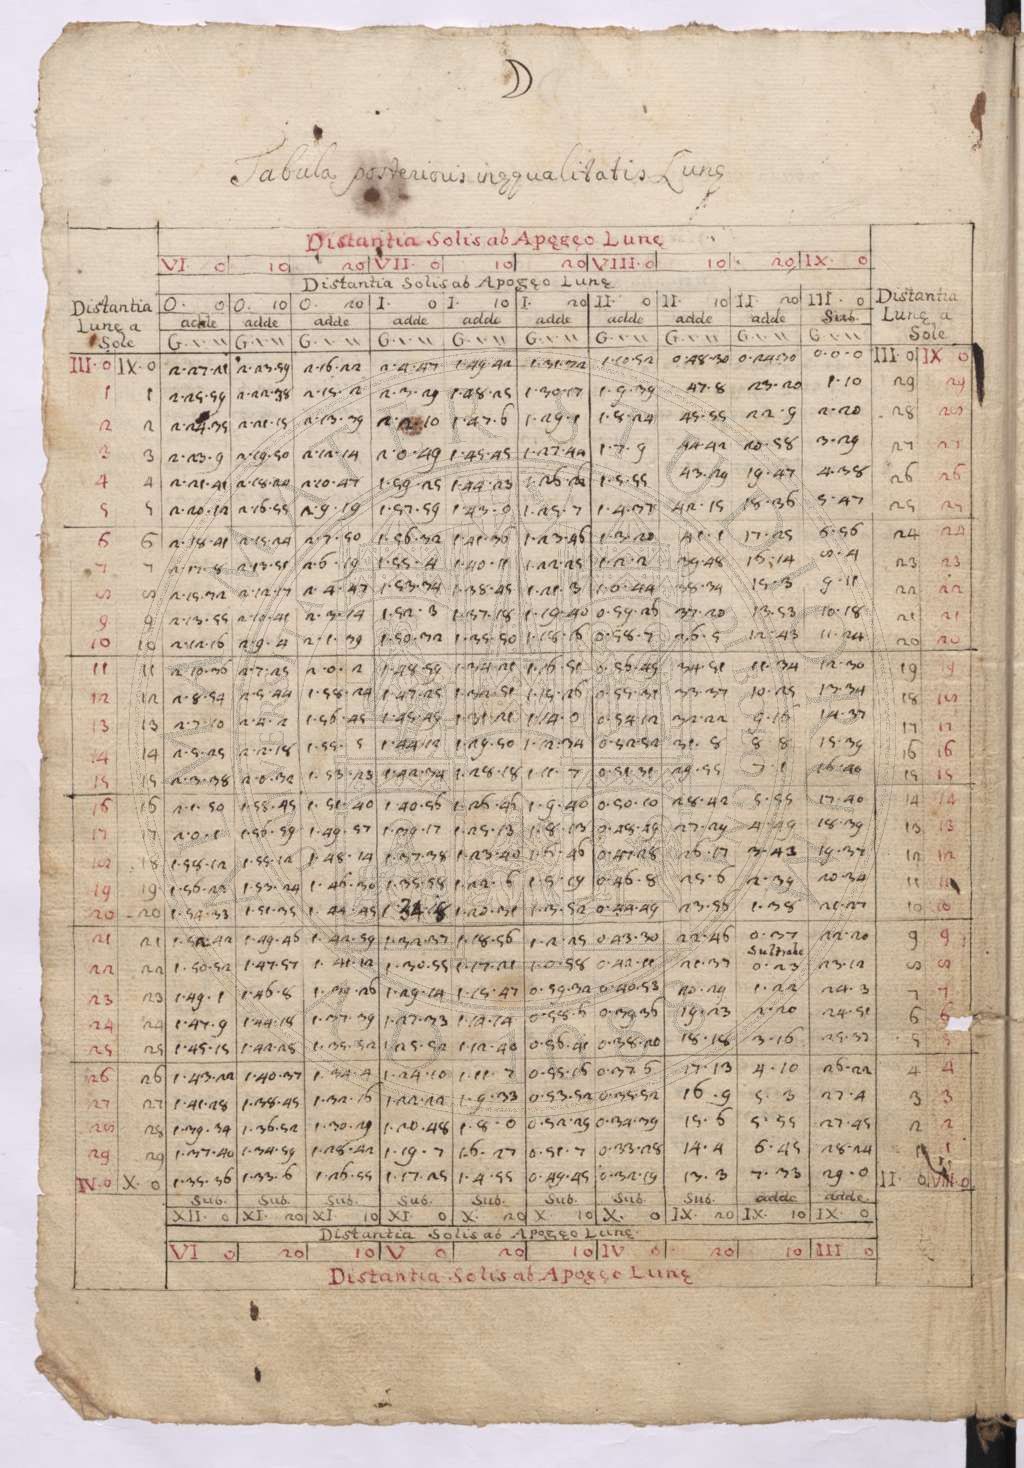 ☽
Tabula posterioris inęqualitatis Lunę
Distantia Solis ab Apogęo Lunę
VI. 0 10 20 VII. 0 10 20 VIII. 0 10 20 IX. 0
Distantia Solis ab Apogęo Lunę
Distantia Lunę a Sole 0. 0 0. 10 0. 20 I. 0 I. 10 I. 20 II. 0 II. 10 II. 20 III. 0 Distantia Lunę a Sole
adde adde adde adde adde adde adde adde adde Sub.
III. 0 IX. 0 2.27.21 2.23.59 2.16.22 2.4.47 1.49.42 1.31.32 1.10.52 0.48.30 0.24.30 0.0.0 III 0 IX 0
1 1 2.25.59 2.22.38 2.15.2 2.3.29 1.48.25 1.30.17 1.9.39 47.8 23.20 1.10 29 29
2 2 2.24.35 2.21.15 2.13.39 2.2.10 1.47.6 1.29.1 1.8.24 45.55 22.9 2.20 28 28
3 3 2.23.9 2.19.50 2.12.14 2.0.49 1.45.45 1.27.44 1.7.9 44.42 20.58 3.29 27 27
4 4 2.21.41 2.18.24 2.10.47 1.59.25 1.44.23 1.26.26 1.5.55 43.29 19.47 4.38 26 26
5 5 2.20.12 2.16.55 2.9.19 1.57.59 1.43.0 1.25.7 1.4.37 42.15 18.36 5.47 25 25
6 6 2.18.41 2.15.24 2.7.50 1.56.32 1.41.36 1.23.46 1.3.20 41.1 17.25 6.56 24 24
7 7 2.17.8 2.13.51 2.6.19 1.55.4 1.40.11 1.22.25 1.2.2 39.48 16.14 8.4 23 23
8 8 2.15.32 2.12.17 2.4.47 1.53.34 1.38.45 1.21.3 1.0.44 38.34 15.3 9.11 22 22
9 9 2.13.55 2.10.41 2.3.14 1.52.3 1.37.18 1.19.40 0.59.26 37.20 13.53 10.18 21 21
10 10 2.12.16 2.9.4 2.1.39 1.50.32 1.35.50 1.18.16 0.58.7 26.5 12.43 11.24 20 20
11 11 2.10.36 2.7.25 2.0.2 1.48.59 1.34.21 1.16.51 0.56.49 34.51 11.34 12.30 19 19
12 12 2.8.54 2.5.44 1.58.24 1.47.25 1.32.51 1.15.26 0.55.31 33.37 10.25 13.34 18 18
13 13 2.7.10 2.4.2 1.56.45 1.45.49 1.31.21 1.14.0 0.54.12 32.22 9.16 14.37 17 17
14 14 2.5.25 2.2.18 1.55.5 1.44.12 1.29.50 1.12.34 0.52.52 31.8 8 8 15.39 16 16
15 15 2.3.38 2.0.32 1.53.23 1.42.34 1.28.18 1.11.7 0.51.31 29.55 7.1 16.40 15 15
16 16 2.1.50 1.58.45 1.51.40 1.40.56 1.26.46 1.9.40 0.50.10 28.42 5.55 17.40 14 14
17 17 2.0.1 1.56.59 1.49.57 1.39.17 1.25.13 1.8.13 0.48.49 27.29 4.49 18.39 13 13
18 18 1.58.12 1.55.12 1.48.14 1.37.38 1.23.40 1.6.46 0.47.28 26.17 3.43 19.37 12 12
19 19 1.56.22 1.53.24 1.46.30 1.35.58 1.22.6 1.5.19 0.46.8 25.6 2.39 20.34 11 11
20 20 1.54.33 1.51.35 1.44.45 1.34.18 1.20.31 1.3.52 0.44.49 23.55 1.38 21.27 10 10
21 21 1.52.42 1.49.46 1.42.59 1.32.37 1.18.56 1.2.25 0.43.30 22.46 0.37 22.20 9 9
Subtrahe
22 22 1.50.52 1.47.57 1.41.12 1.30.55 1.17.21 1.0.58 0.42.11 21.37 0.23 23.12 8 8
23 23 1.49.1 1.46.8 1.39.26 1.29.14 1.15.47 0.59.32 0.40.53 20.29 1.22 24.3 7 7
24 24 1.47.9 1.44.18 1.37.39 1.27.33 1.14.14 0.58.6 0.39.36 19.23 2.20 24.51 6 6
25 25 1.45.15 1.42.28 1.35.52 1.25.52 1.12.40 0.56.41 0.38.20 18.18 3.16 25.37 5 5
26 26 1.43.22 1.40.37 1.34.4 1.24.10 1.11.7 0.55.16 0.37.6 17.13 4.10 26.22 4 4
27 27 1.41.28 1.38.45 1.32.16 1.22.22 1.9.33 0.53.52 0.35.52 16.9 5.3 27.4 3 3
28 28 1.39.34 1.36.52 1.30.29 1.20.48 1.8.0 0.52.29 0.34.39 15.6 5.55 27.45 2 2
29 29 1.37.40 1.34.59 1.28.42 1.19.7 1.6.27 0.51.7 0.33.28 14.4 6.45 28.24 1 1
IV. 0 X. 0 1.35.36 1.33.6 1.26.55 1.17.25 1.4.55 0.49.45 0.32.19 13.3 7.33 29.0 II. 0 VIII. 0
Sub. Sub. Sub. Sub. Sub. Sub. Sub. Sub. adde adde.
XII. 0 XI. 20 XI 10 XI. 0 X. 20 X. 10 X. 0 IX. 20 IX. 10 IX. 0
Distantia Solis ab Apogęo Lunę.
VI 0 20 10 V 0 20 10 IV 0 20 10 III 0
Distantia Solis ab Apogęo Lunę